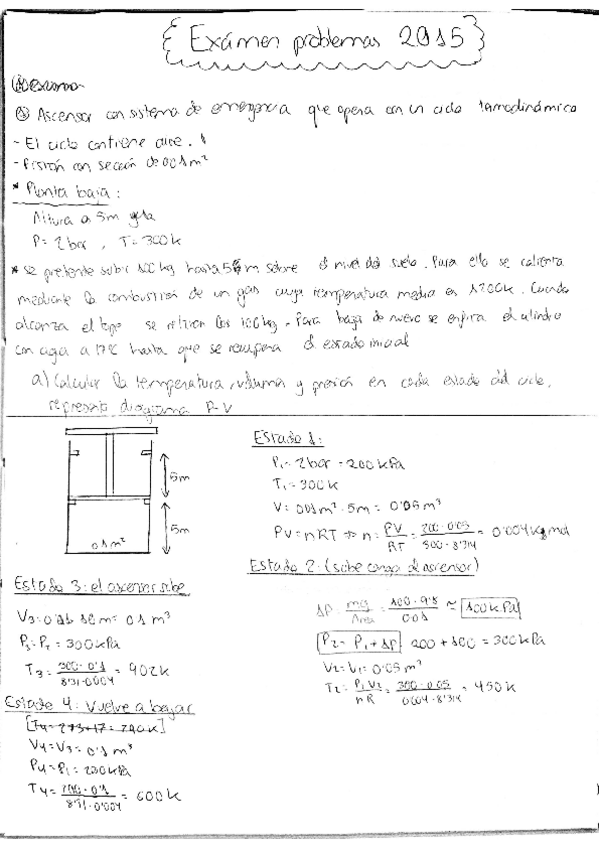 Exámen problemas 2015
Resumen
① Ascensor con sistema de emergencia que opera con un ciclo termodinámico
- El ciclo contiene aire.
- Pistón con sección de 0'01m²
* Planta baja:
Altura a 5m
P= 2bar, T= 300k
* se pretende subir 100kg hasta 5 m sobre el nivel del suelo. Para ello se calienta
mediante la combustión de un gas cuya temperatura media es 1200k. Cuando
alcanza el tope se retiran los 100kg. Para bajar de nuevo se enfría el cilindro
con agua a 17ºC hasta que se recupera el estado inicial
a) Calcular la temperatura, volumen y presión en cada estado del ciclo,
representa diagrama P-V
5m
5m
0'01m²
Estado 1:
P₁= 2bar = 200kPa
T₁= 300k
V= 0'01m² · 5m = 0'05m³
PV=nRT → n= PV/RT = 200·0'05/300·8'314 = 0'004kgmol
Estado 2: (sube cargo al ascensor)
ΔP= mg/Area = 100·9'8/0'01 ≈ 100kPa
P₂= P₁+ΔP 200+100 = 300kPa
V₂=V₁= 0'05m³
T₂= P₂V₂/nR = 300·0'05/0'004·8'314 = 450k
Estado 3: el ascensor sube
V₃= 10m= 0'1 m³
P₃=P₂= 300kPa
T₃= 300·0'1/8'31·0'004 = 902k
Estado 4: Vuelve a bajar
[T₄= 273+17= 290k]
V₄=V₃= 0'1m³
P₄=P₁= 200kPa
T₄= 200·0'1/8'31·0'004 = 600k